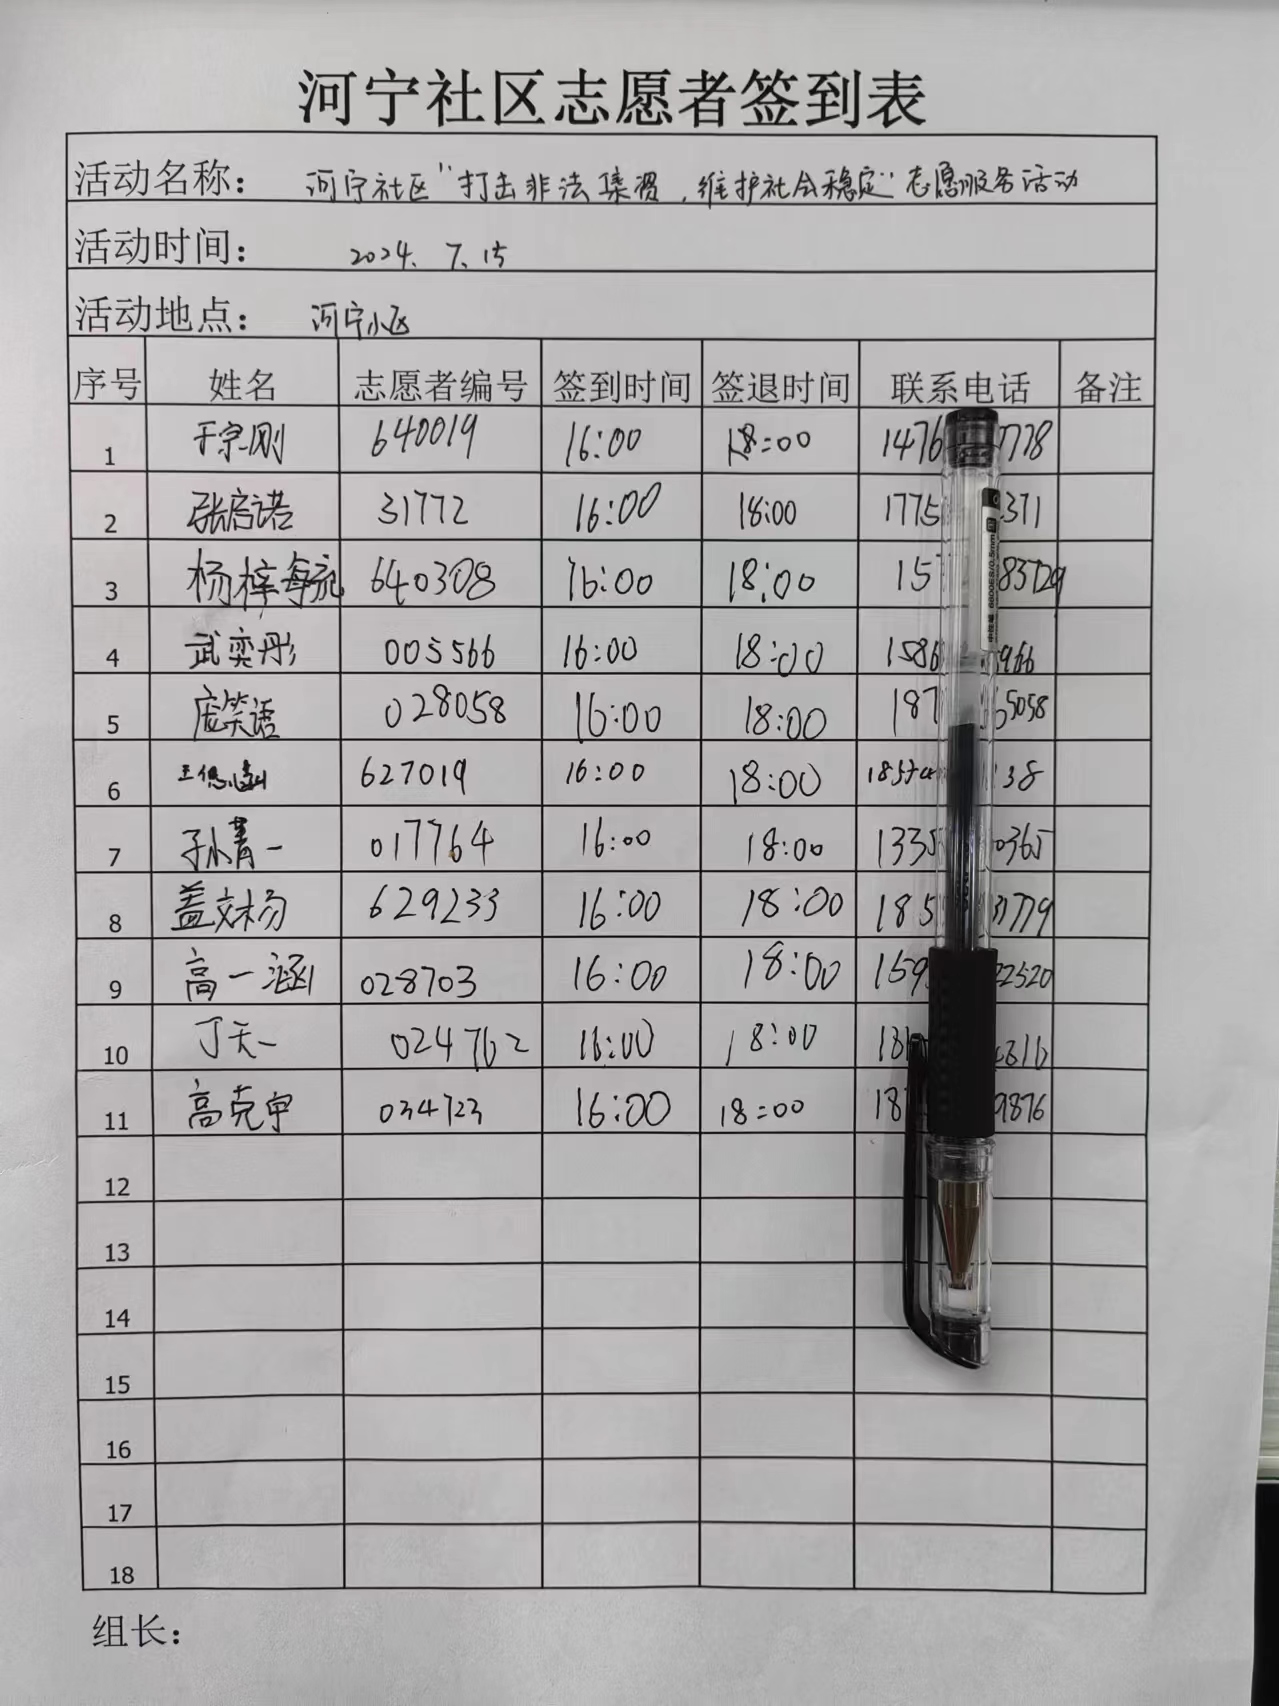 河宁社区志愿者签到表
活动名称： 河宁社区“打击非法集资，维护社会稳定”志愿服务活动
活动时间： 2024.7.15
活动地点： 河宁小区
序号 姓名 志愿者编号 签到时间 签退时间 联系电话 备注
1 于宗刚 640019 16:00 18:00 1476 7778
2 张启诺 31772 16:00 18:00 1775 371
3 杨梓 640308 16:00 18:00 15 85729
4 武奕彤 005566 16:00 18:00 1586 966
5 庞笑语 028058 16:00 18:00 187 65058
6 627019 16:00 18:00 38
7 孙菁一 017764 16:00 18:00 1335 0365
8 盖文杨 629233 16:00 18:00 185 31779
9 高一涵 028703 16:00 18:00 159 22520
10 丁天一 024762 16:00 18:00 18
11 高克宇 034723 16:00 18:00 18 9876
12
13
14
15
16
17
18
组长：